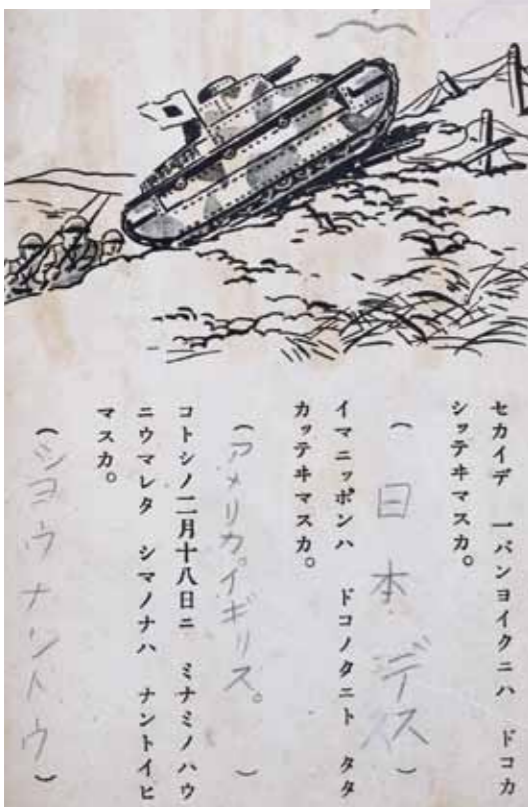 セカイデ　一バンヨイクニハ　ドコカ
シッテヰマスカ。
（日本デス）
イマニッポンハ　ドコノクニト　タタ
カッテヰマスカ。
（アメリカ。イギリス。）
コトシノ二月十八日ニ　ミナミノハウ
ニウマレタ　シマノナハ　ナントイヒ
マスカ。
（シヨウナントウ）